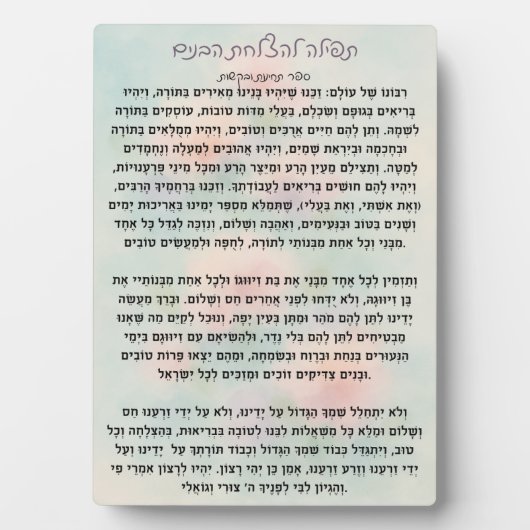 תפילה להצלחת הבנים
ספר תחינות ובקשות
רִבּוֹנוֹ שֶׁל עוֹלָם: זַכֵּנוּ שֶׁיִּהְיוּ בָּנֵינוּ מְאִירִים בַּתּוֹרָה, וְיִהְיוּ
בְּרִיאִים בְּגוּפָם וְשִׂכְלָם, בַּעֲלֵי מִדּוֹת טוֹבוֹת, עוֹסְקִים בַּתּוֹרָה
לִשְׁמָהּ. וְתֵן לָהֶם חַיִּים אֲרֻכִּים וְטוֹבִים, וְיִהְיוּ מְמֻלָּאִים בַּתּוֹרָה
וּבְחָכְמָה וּבְיִרְאַת שָׁמַיִם, וְיִהְיוּ אֲהוּבִים לְמַעְלָה וְנֶחְמָדִים
לְמַטָּה. וְתַצִּילֵם מֵעַיִן הָרַע וּמִיֵּצֶר הָרַע וּמִכָּל מִינֵי פֻּרְעָנוּיוֹת,
וְיִהְיוּ לָהֶם חוּשִׁים בְּרִיאִים לַעֲבוֹדָתְךָ. וְזַכֵּנוּ בְּרַחֲמֶיךָ הָרַבִּים,
(וְאֶת אִשְׁתִּי, וְאֶת בַּעֲלִי), שֶׁתְּמַלֵּא מִסְפַּר יָמֵינוּ בַּאֲרִיכוּת יָמִים
וְשָׁנִים בְּטוֹב וּבַנְּעִימִים, וְאַהֲבָה וְשָׁלוֹם, וְנִזְכֶּה לְגַדֵּל כָּל אֶחָד
מִבָּנַי וְכָל אַחַת מִבְּנוֹתַי לְתוֹרָה, לְחֻפָּה וּלְמַעֲשִׂים טוֹבִים.
וְתַזְמִין לְכָל אֶחָד מִבָּנַי אֶת בַּת זִיווּגוֹ וּלְכָל אַחַת מִבְּנוֹתַיי אֶת
בֶּן זִיוּוּגָהּ, וְלֹא יִדָּחוּ לִפְנֵי אֲחֵרִים חַס וְשָׁלוֹם. וּבָרֵךְ מַעֲשֵׂה
יָדֵינוּ לִתֵּן לָהֶם מֹהַר וּמַתָּן בְּעַיִן יָפָה, וְנוּכַל לְקַיֵּם מַה שֶּׁאָנוּ
מַבְטִיחִים לִתֵּן לָהֶם בְּלִי נֶדֶר, וּלְהַשִּׂיאָם עִם זִיוּוּגָם בִּימֵי
הַנְּעוּרִים בְּנַחַת וּבְרֶוַח וּבְשִׂמְחָה, וּמֵהֶם יֵצְאוּ פֵּרוֹת טוֹבִים
וּבָנִים צַדִּיקִים זוֹכִים וּמְזַכִּים לְכָל יִשְׂרָאֵל.
וְלֹא יִתְחַלֵּל שִׁמְךָ הַגָּדוֹל עַל יָדֵינוּ, וְלֹא עַל יְדֵי זַרְעֵנוּ חַס
וְשָׁלוֹם וּמַלֵּא כָּל מִשְׁאֲלוֹת לִבֵּנוּ לְטוֹבָה בִּבְרִיאוּת, בְּהַצְלָחָה וְכָל
טוּב, וְיִתְגַּדֵּל כְּבוֹד שִׁמְךָ הַגָּדוֹל וּכְבוֹד תּוֹרָתְךָ עַל יָדֵינוּ וְעַל
יְדֵי זַרְעֵנוּ וְזֶרַע זַרְעֵנוּ, אָמֵן כֵּן יְהִי רָצוֹן. יִהְיוּ לְרָצוֹן אִמְרֵי פִי
וְהֶגְיוֹן לִבִּי לְפָנֶיךָ ה' צוּרִי וְגוֹאֲלִי.